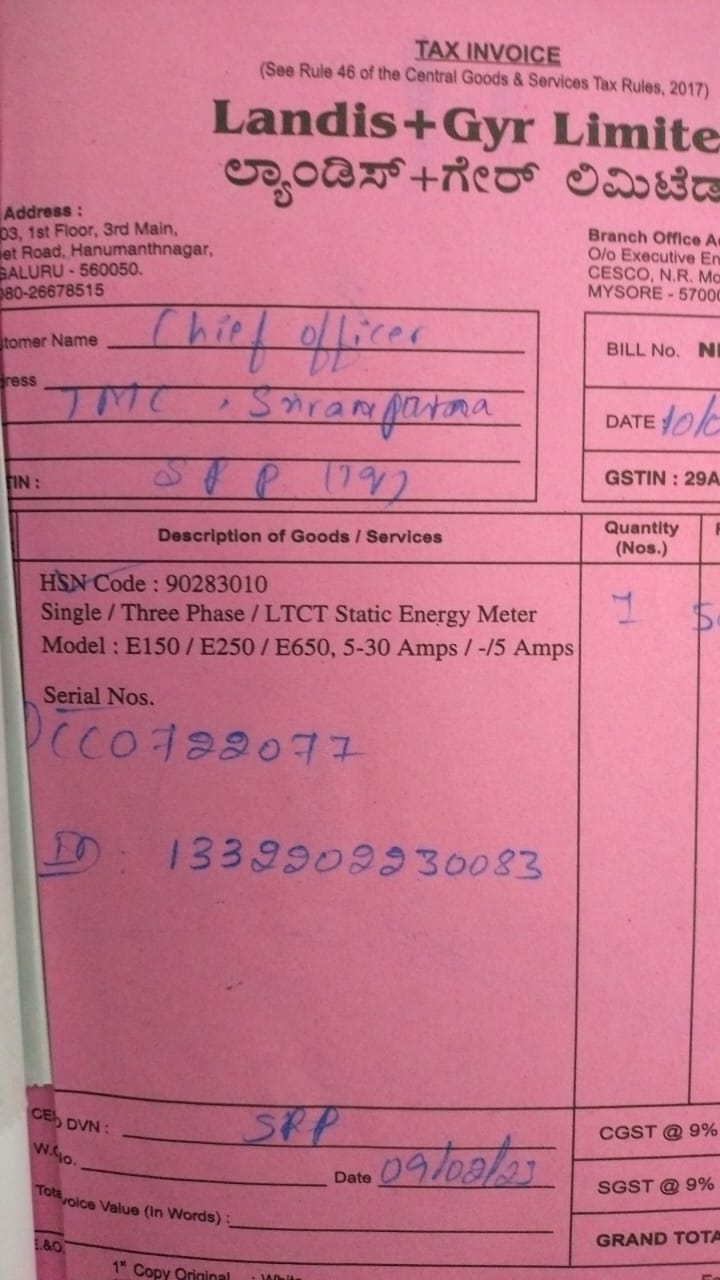 TAX INVOICE
(See Rule 46 of the Central Goods & Services Tax Rules, 2017)
Landis+Gyr Limite
ಲ್ಯಾಂಡಿಸ್+ಗೇರ್ ಲಿಮಿಟೆಡ
Address :
03, 1st Floor, 3rd Main,
et Road, Hanumanthnagar,
GALURU - 560050.
080-26678515
Branch Office A
O/o Executive En
CESCO, N.R. Mo
MYSORE - 5700
tomer Name Chief officer
ress
TMC,
TIN : SRP
BILL No. N
DATE 10/0
GSTIN : 29A
Description of Goods / Services
Quantity
(Nos.)
HSN Code : 90283010
Single / Three Phase / LTCT Static Energy Meter
Model : E150 / E250 / E650, 5-30 Amps / -/5 Amps
1
Serial Nos.
CC0722077
ID : 1332202230083
DVN : SRP
No. Date 09/02/23
voice Value (In Words) :
CGST @ 9%
SGST @ 9%
GRAND TOTA
E.&O.
1st Copy Original : Whit